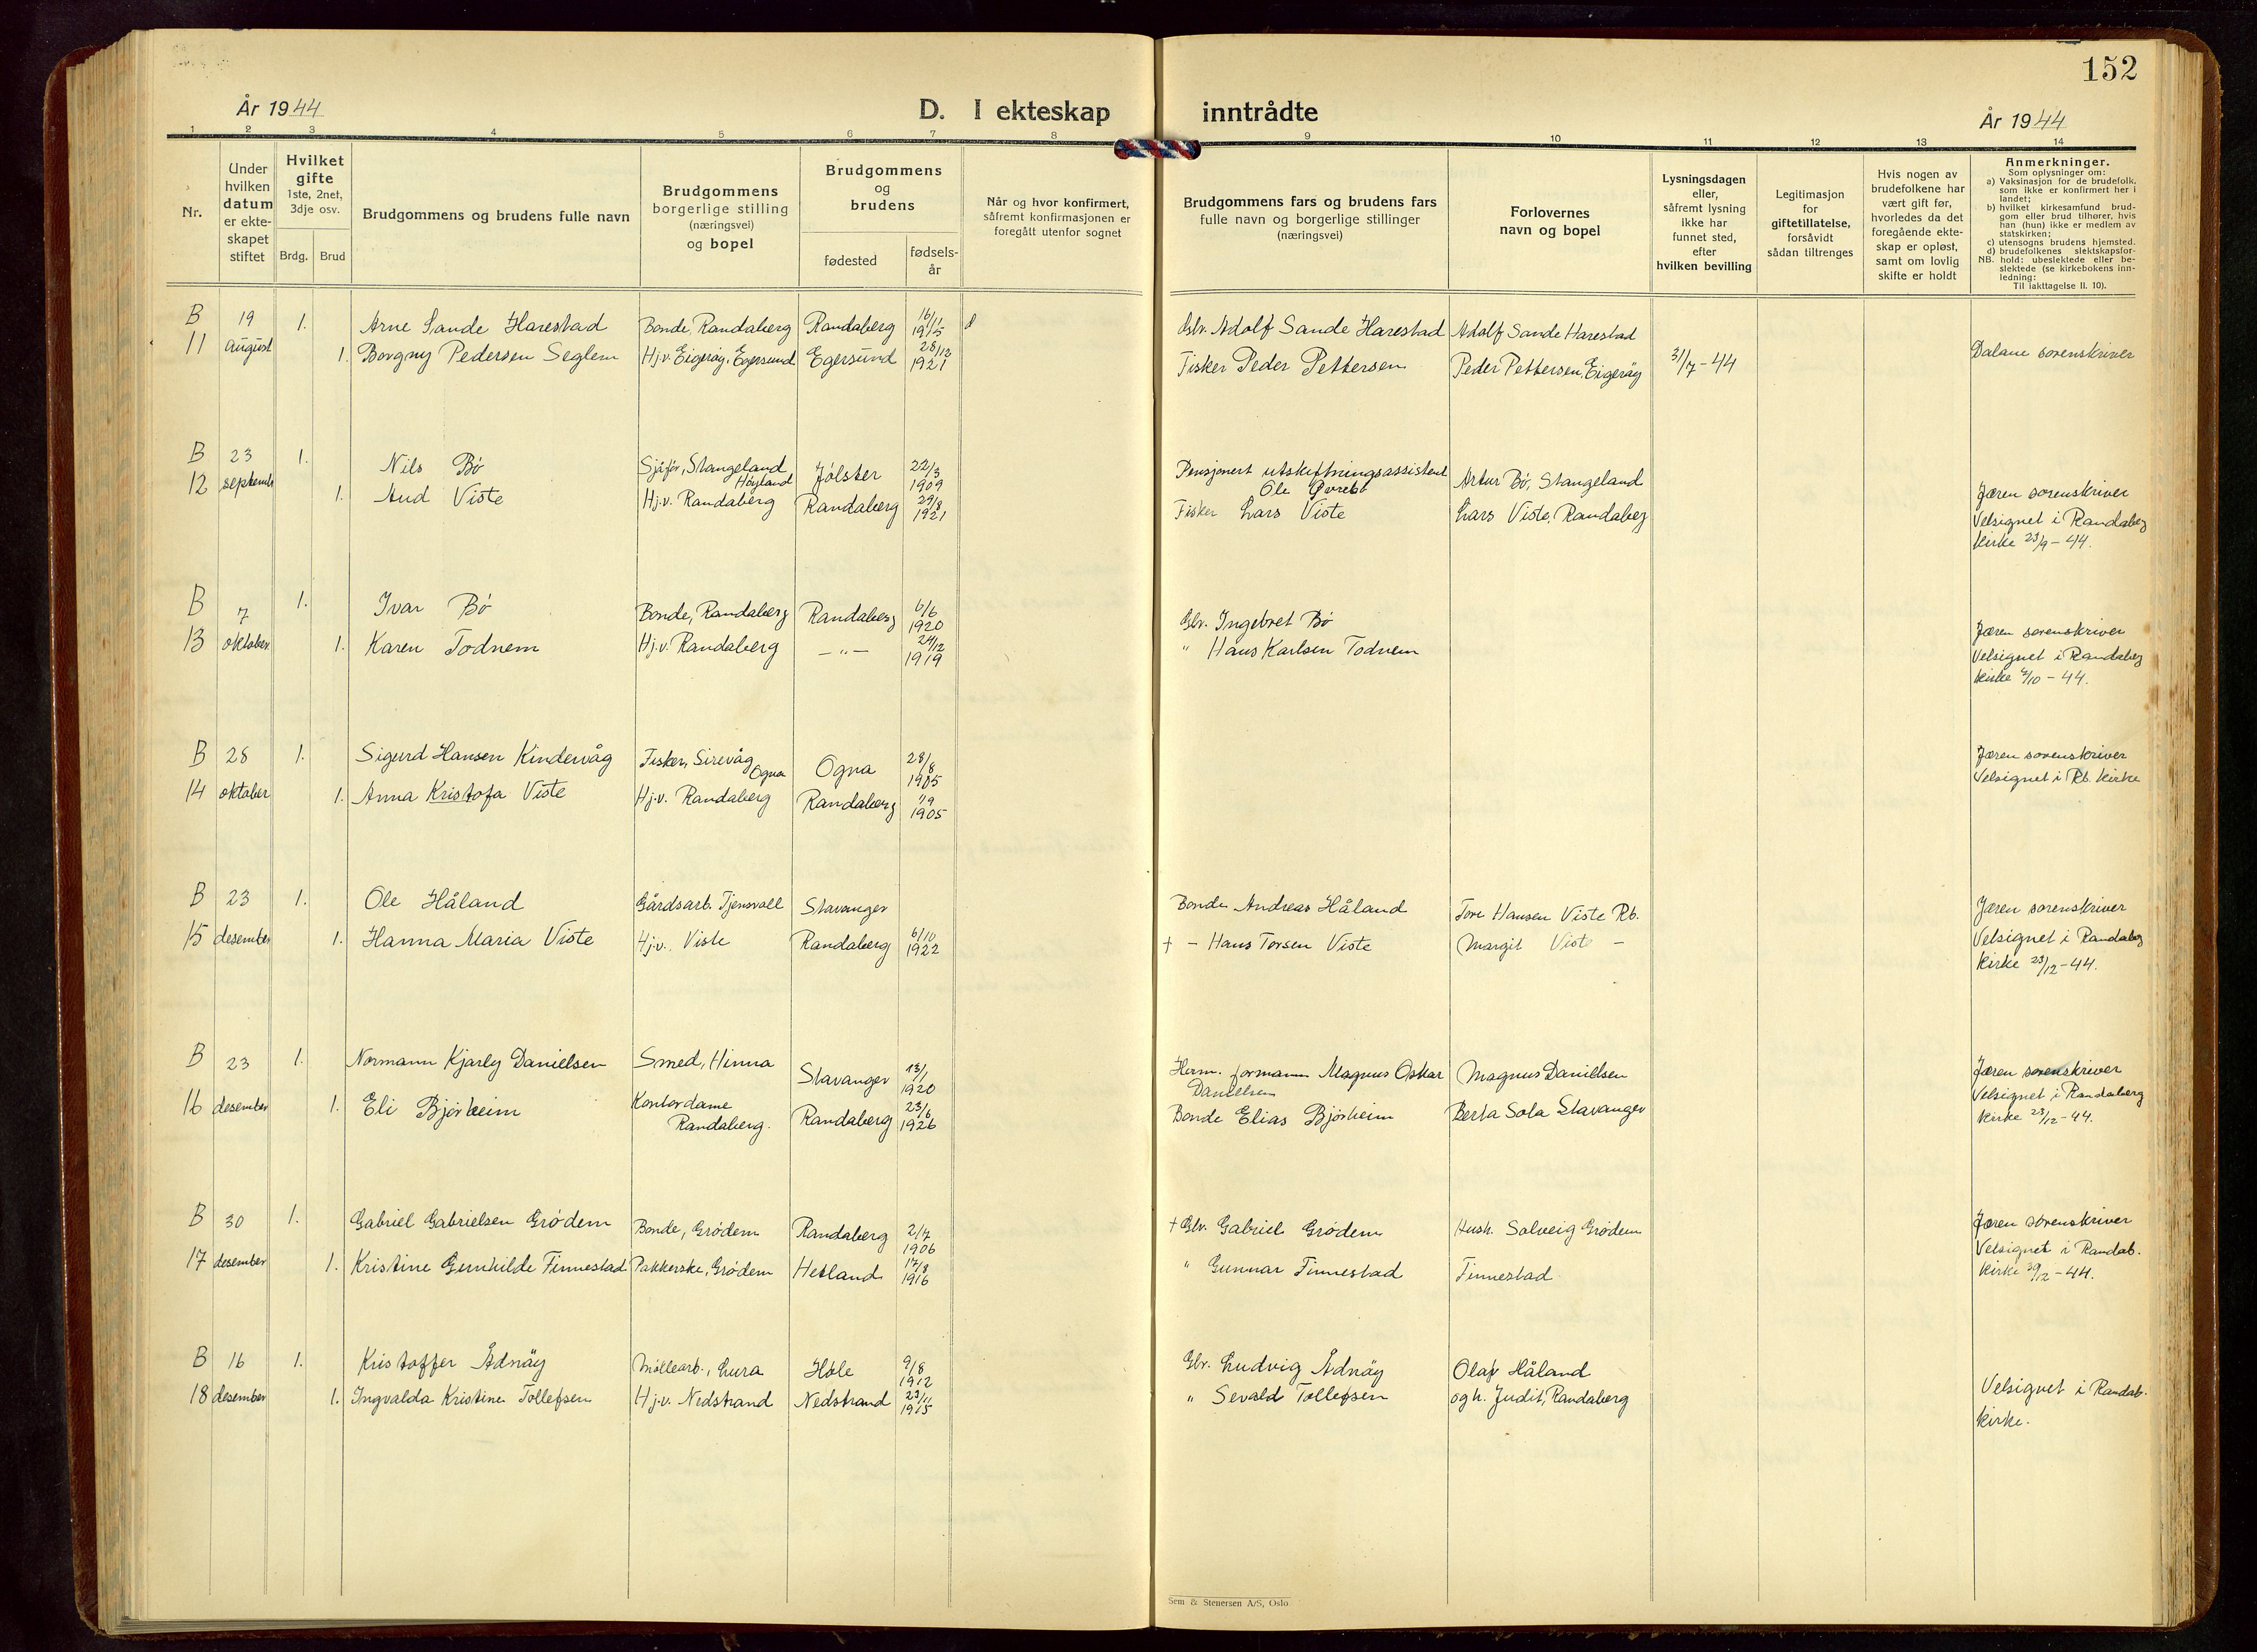 152
År 1944
D. I ekteskap inntrådte
År 1944
1 2 3 4 5 6 7 8 9 10 11 12 13 14
Nr.
Under hvilken datum er ekte-skapet stiftet
Hvilket gifte
1ste, 2net, 3dje osv.
Brdg. Brud
Brudgommens og brudens fulle navn
Brudgommens borgerlige stilling (næringsvei) og bopel
Brudgommens og brudens
fødested
fødsels-år
Når og hvor konfirmert, såfremt konfirmasjonen er foregått utenfor sognet
Brudgommens fars og brudens fars fulle navn og borgerlige stillinger (næringsvei)
Forlovernes navn og bopel
Lysningsdagen eller, såfremt lysning ikke har funnet sted, efter hvilken bevilling
Legitimasjon for giftetillatelse, forsåvidt sådan tiltrenges
Hvis nogen av brudefolkene har vært gift før, hvorledes da det foregående ekte-skap er opløst, samt om lovlig skifte er holdt
Anmerkninger.
Som oplysninger om:
a) Vaksinasjon for de brudefolk, som ikke er konfirmert her i landet;
b) hvilket kirkesamfund brud-gom eller brud tilhører, hvis han (hun) ikke er medlem av statskirken;
c) utensogns brudens hjemsted.
d) brudefolkenes slektskapsfor-hold: ubeslektede eller be-slektede (se kirkebokens inn-ledning:
NB.
Til iakttagelse II. 10).
B 19 1. Arne Sande Harestad Bonde, Randaberg Randaberg 16/11 1915 Gbr. Adolf Sande Harestad Adolf Sande Harestad
11 august 1. Borgny Pedersen Seglem Hj.v. Eigerøy, Egersund Egersund 28/12 1921 Fisker Peder Pettersen Peder Pettersen, Eigerøy 31/7-44 Dalane sorenskriver
B 23 1. Nils Bø Sjåfør, Stangeland Høyland Jølster 22/3 1909 Pensjonert utskiftningsassistent Ole Øvrebø Artur Bø, Stangeland
12 septemb 1. Aud Viste Hj.v. Randaberg Randaberg 29/8 1921 Fisker Lars Viste Lars Viste, Randaberg Jæren sorenskriver
Velsignet i Randaberg
kirke 23/9-44.
B 7 1. Ivar Bø Bonde, Randaberg Randaberg 6/6 1920 Gbr. Ingebret Bø
13 oktober 1. Karen Todnem Hj.v. Randaberg —"— 24/12 1919 " Hans Karlsen Todnem Jæren sorenskriver
Velsignet i Randaberg
kirke 7/10-44.
B 28 1. Sigurd Hansen Kindervåg Fisker, Sirevåg Ogna Ogna 28/8 1905 Jæren sorenskriver
14 oktober 1. Anna Kristofa Viste Hj.v. Randaberg Randaberg 1905 Velsignet i Rb. kirke
B 23 1. Ole Håland Gårdsarb. Tjensvoll Stavanger Bonde Andreas Håland Tore Hansen Viste Rb. Jæren sorenskriver
15 desember 1. Hanna Maria Viste Hj.v. Viste Randaberg 6/10 1922 † - Hans Torsen Viste Margit Viste - Velsignet i Randaberg
kirke 23/12-44.
B 23 1. Normann Kjarly Danielsen Smed, Hinna Stavanger 13/1 1920 Herm. formann Magnus Oskar Danielsen Magnus Danielsen Jæren sorenskriver
16 desember 1. Eli Bjørheim Kontordame Randaberg. Randaberg 23/6 1926 Bonde Elias Bjørheim Berta Sola Stavanger Velsignet i Randaberg
kirke 23/12-44.
B 30 1. Gabriel Gabrielsen Grødem Bonde, Grødem Randaberg 2/7 1906 † Gbr. Gabriel Grødem Hush. Solveig Grødem Jæren sorenskriver
17 desember 1. Kristine Gunhilde Finnestad Pakkerske, Grødem Hetland 17/8 1916 " Gunnar Finnestad Finnestad Velsignet i Randab.
kirke 30/12-44.
B 16 1. Kristoffer Ådnøy Møllearb., Lura Høle 9/8 1912 Gbr. Ludvig Ådnøy Olaf Håland
18 desember 1. Ingvalda Kristine Tollefsen Hj.v. Nedstrand Nedstrand 23/11 1915 " Sevald Tollefsen og h. Judit, Randaberg Velsignet i Randab.
kirke.
Sem & Stenersen A/S, Oslo